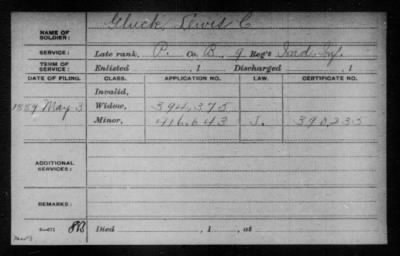 Gluck, Lewis C
NAME OF SOLDIER:
SERVICE: Late rank, P. Co. B, 9 Reg't Ind. Inf.
TERM OF SERVICE: Enlisted , 1 Discharged , 1
DATE OF FILING. CLASS. APPLICATION NO. LAW. CERTIFICATE NO.
Invalid,
1889 May 3 Widow, 394,375
Minor, 416,643 J. 390,235
ADDITIONAL SERVICES:
REMARKS:
Died , 1 , at